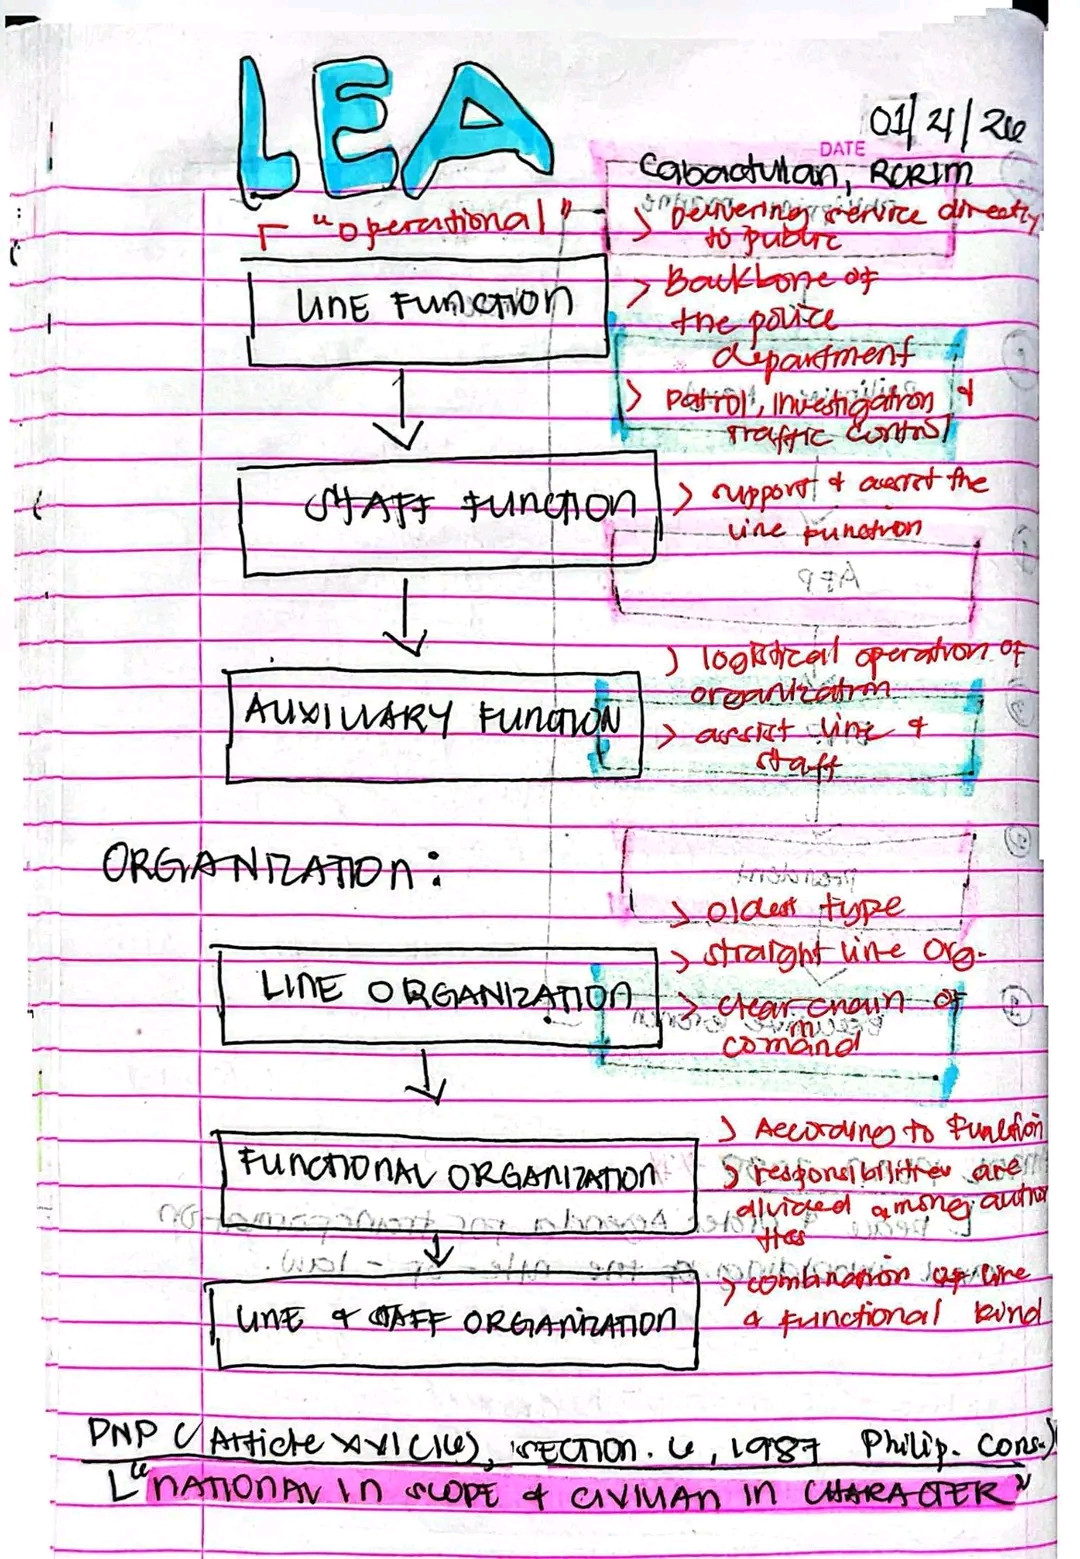 LEA
01/21/26
DATE
Cabactulan, RCRIM
"operational"
> Delivering service directly
to public
LINE FUNCTION
> Backbone of
the police
department
> patrol, investigation &
traffic control
STAFF FUNCTION
> support & assist the
line function
> logistical operation of
organization
AUXILIARY FUNCTION
> assist line &
staff
ORGANIZATION:
> oldest type
> straight line org.
LINE ORGANIZATION
> clear chain of
command
> According to Function
FUNCTIONAL ORGANIZATION
> responsibilities are
divided among autho
ties
> combination of line
& functional kind
LINE & STAFF ORGANIZATION
PNP (Article XVI (16), SECTION. 6, 1987 Philip. Cons.)
"NATIONAL IN SCOPE & CIVILIAN IN CHARACTER"